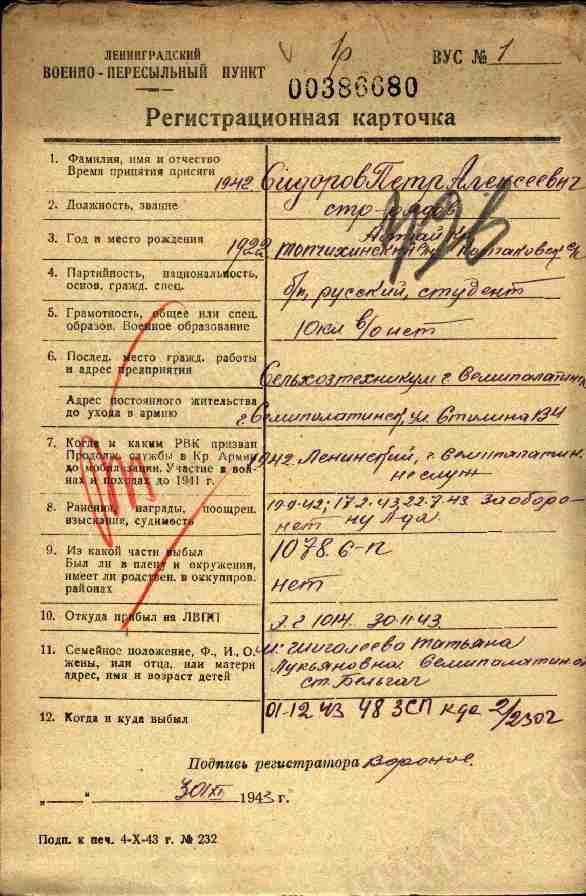 ЛЕНИНГРАДСКИЙ
ВОЕННО-ПЕРЕСЫЛЬНЫЙ ПУНКТ
ВУС № 1
00386680
Регистрационная карточка
1. Фамилия, имя и отчество
Время принятия присяги
1942. Сидоров Петр Алексеевич
2. Должность, звание
3. Год и место рождения
1922
Алтай кр.
4. Партийность, национальность,
основ. гражд. спец.
б/п, русский, студент
5. Грамотность, общее или спец.
образов. Военное образование
10 кл в/о нет
6. Послед. место гражд. работы
и адрес предприятия
Сельхозтехникум г. Семипалатинск
Адрес постоянного жительства
до ухода в армию
г. Семипалатинск, ул. Сталина 134
7. Когда и каким РВК призван
Продолж. службы в Кр. Армии
до мобилизации. Участие в вой-
нах и походах до 1941 г.
1942. Ленинский, г. Семипалатин.
не служ
8. Ранения, награды, поощрен.
взыскания, судимость
17.2.43, 22.7.43. За оборо-
нет ну Л-да
9. Из какой части выбыл
Был ли в плену и окружении,
имеет ли родствен. в оккупиров.
районах
1078 с-п
нет
10. Откуда прибыл на ЛВПП
30 11 43
11. Семейное положение, Ф., И., О.
жены, или отца, или матери
адрес, имя и возраст детей
Татьяна
Лукьяновна Семипалатинск
ст. Бельгач
12. Когда и куда выбыл
01-12 43 48 ЗСП
Подпись регистратора
„ “ 30/XI 1943 г.
Подп. к печ. 4-X-43 г. № 232